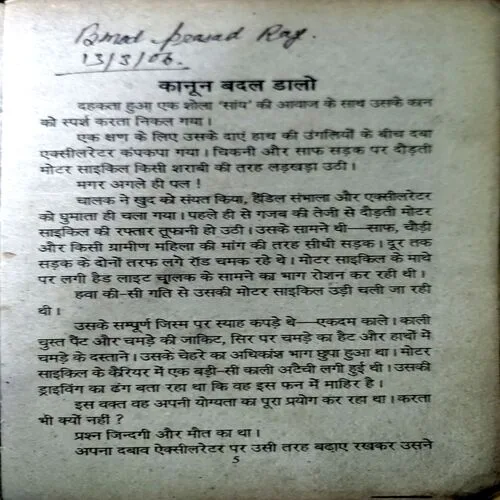 Bimal Prasad Ray.
13/3/06.
कानून बदल डालो
दहकता हुआ एक शोला 'सांय' की आवाज के साथ उसके कान
को स्पर्श करता निकल गया।
एक क्षण के लिए उसके दाएं हाथ की उंगलियों के बीच दबा
एक्सीलरेटर कंपकपा गया। चिकनी और साफ सड़क पर दौड़ती
मोटर साइकिल किसी शराबी की तरह लड़खड़ा उठी।
मगर अगले ही पल !
चालक ने खुद को संयत किया, हैंडिल संभाला और एक्सीलरेटर
को घुमाता ही चला गया। पहले ही से गजब की तेजी से दौड़ती मोटर
साइकिल की रफ्तार तूफानी हो उठी। उसके सामने थी—साफ, चौड़ी
और किसी ग्रामीण महिला की मांग की तरह सीधी सड़क। दूर तक
सड़क के दोनों तरफ लगे रॉड चमक रहे थे। मोटर साइकिल के माथे
पर लगी हैड लाइट चालक के सामने का भाग रोशन कर रही थी।
हवा की-सी गति से उसकी मोटर साइकिल उड़ी चली जा रही
थी।
उसके सम्पूर्ण जिस्म पर स्याह कपड़े थे—एकदम काले। काली
चुस्त पैंट और चमड़े की जाकिट, सिर पर चमड़े का हैट और हाथों में
चमड़े के दस्ताने। उसके चेहरे का अधिकांश भाग छुपा हुआ था। मोटर
साइकिल के कैरियर में एक बड़ी-सी काली अटैची लगी हुई थी। उसकी
ड्राइविंग का ढंग बता रहा था कि वह इस फन में माहिर है।
इस वक्त वह अपनी योग्यता का पूरा प्रयोग कर रहा था। करता
भी क्यों नहीं ?
प्रश्न जिन्दगी और मौत का था।
अपना दबाव ऐक्सीलरेटर पर उसी तरह बढ़ाए रखकर उसने
5